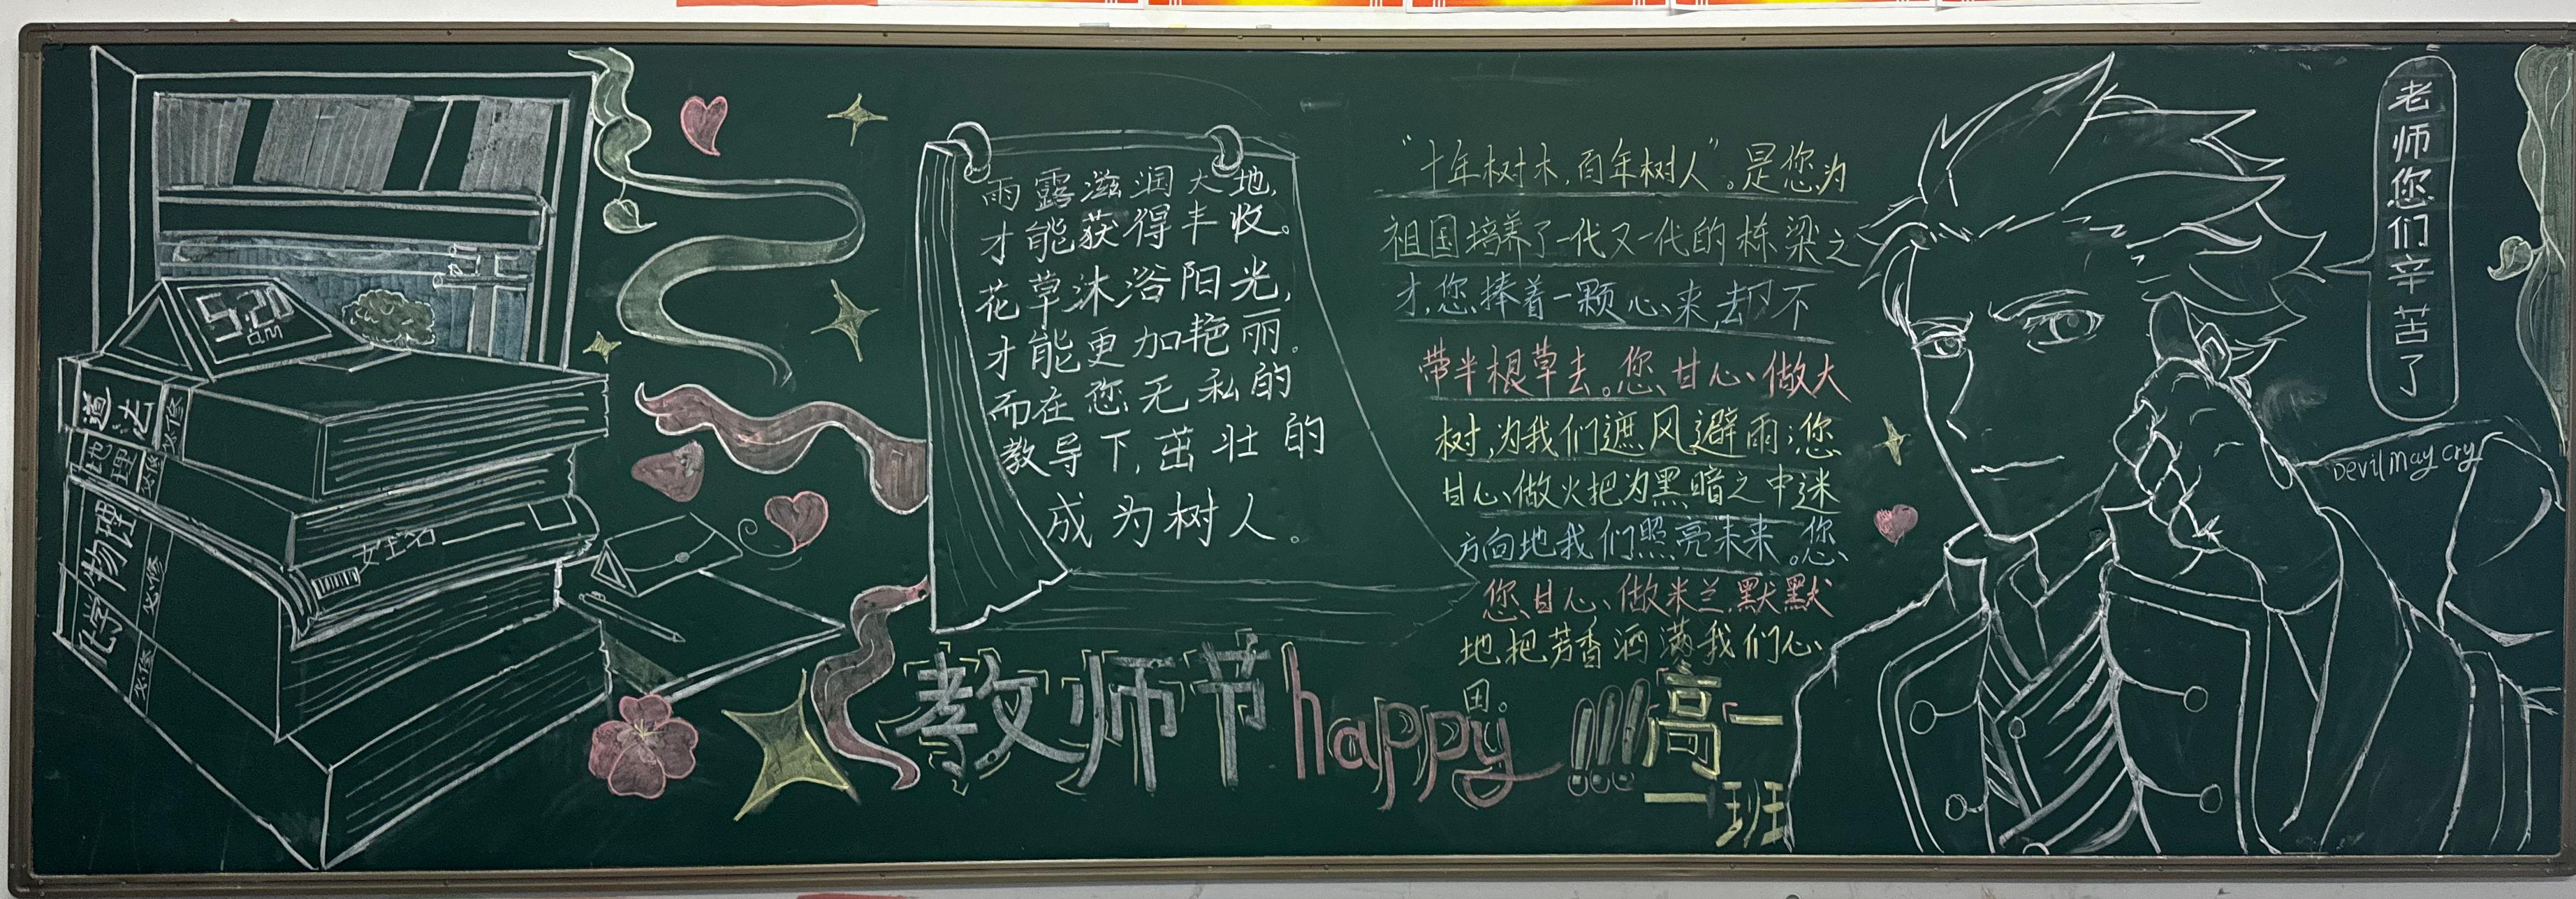 5:20
道法 必修
地理 必修
物理 必修
化学 必修
雨露滋润大地，
才能获得丰收。
花草沐浴阳光，
才能更加艳丽。
而在您无私的
教导下，茁壮的
成为树人。
教师节happy!!!
“十年树木，百年树人”。是您为
祖国培养了一代又一代的栋梁之
才，您捧着一颗心来，却不
带半根草去。您甘心做大
树，为我们遮风避雨；您
甘心做火把为黑暗之中迷
方向地我们照亮未来。您
您甘心做米兰默默
地把芳香洒满我们心
田。
高一
一班
老师您们辛苦了
Devil may cry